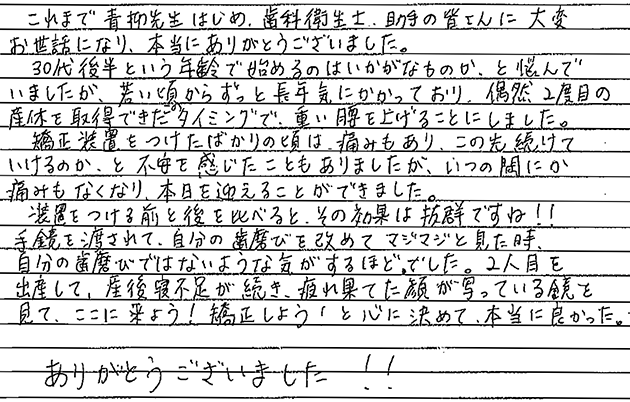 これまで青柳先生はじめ、歯科衛生士、助手の皆さんに大変
お世話になり、本当にありがとうございました。
30代後半という年齢で始めるのはいかがなものか、と悩んで
いましたが、若い頃からずっと長年気にかかっており、偶然2度目の
産休を取得できたタイミングで、重い腰を上げることにしました。
矯正装置をつけたばかりの頃は、痛みもあり、この先続けて
いけるのか、と不安を感じたこともありましたが、いつの間にか
痛みもなくなり、本日を迎えることができました。
装置をつける前と後を比べると、その効果は抜群ですね!!
手鏡を渡されて、自分の歯磨びを改めてマジマジと見た時、
自分の歯磨びではないような気がするほどでした。2人目を
出産して、産後寝不足が続き、疲れ果てた顔が写っている鏡を
見て、ここに来よう!矯正しよう!と心に決めて、本当に良かった。
ありがとうございました!!